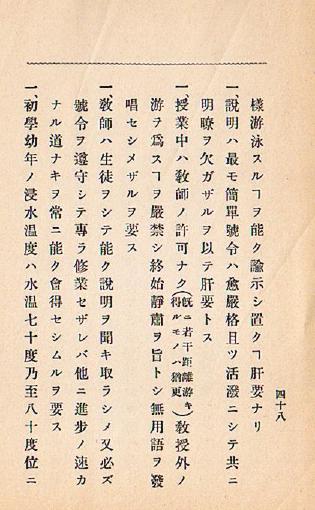 樣游泳スルヿヲ能ク諭示シ置クヿ肝要ナリ
一、說明ハ最モ簡單號令ハ愈嚴格且ツ活潑ニシテ共ニ
明瞭ヲ欠ガザルヲ以テ肝要トス
一、授業中ハ敎師ノ許可ナク(旣ニ若干距離游キ得ルモノハ猶更)敎授外ノ
游ヲ爲スヿヲ嚴禁シ終始靜肅ヲ旨トシ無用語ヲ發
唱セシメザルヲ要ス
一、敎師ハ生徒ヲシテ能ク說明ヲ聞キ取ラシメ又必ズ
號令ヲ遵守シテ專ラ修業セザレバ他ニ進步ノ速カ
ナル道ナキヲ常ニ能ク會得セシムルヲ要ス
一、初學幼年ノ浸水溫度ハ水溫七十度乃至八十度位ニ
四十八